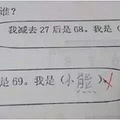 谁?
我减去27后是68。我是(
是69。我是(小熊)